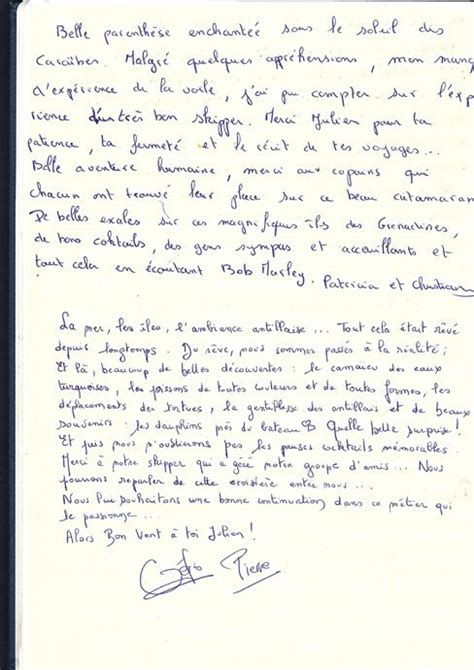 Belle parenthèse enchantée sous le soleil des
Caraïbes. Malgré quelques appréhensions, mon manq
d'expérience de la voile, j'ai pu compter sur l'exp
rience d'un très bon skipper. Merci Julien pour ta
patience, ta fermeté et le récit de tes voyages...
Belle aventure humaine, merci aux copains qui
chacun ont trouvé leur place sur ce beau catamaran
De belles escales sur ces magnifiques îles des Grenadines,
de bons cocktails, des gens sympas et accueillants et
tout cela en écoutant Bob Marley. Patricia et Christian
La mer, les îles, l'ambiance antillaise... Tout cela était rêvé
depuis longtemps. Du rêve, nous sommes passés à la réalité;
Et là, beaucoup de belles découvertes : le camaïeu des eaux
turquoises, les poissons de toutes couleurs et de toutes formes, les
déplacements des tortues, la gentillesse des antillais et de beaux
souvenirs : les dauphins près du bateau Quelle belle surprise!
Et puis nous n'oublierons pas les pauses cocktails mémorables.
Merci à notre skipper qui a géré notre groupe d'amis... Nous
pourrons reparler de cette croisière entre nous...
Nous lui souhaitons une bonne continuation dans ce métier qui
le passionne...
Alors Bon Vent à toi Julien!
Pierre